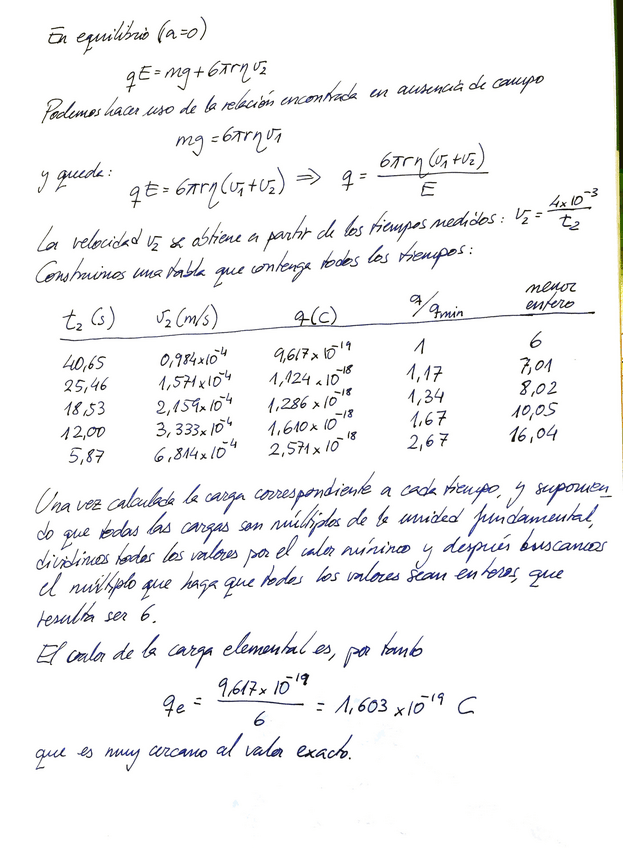 En equilibrio (a=0)
qE = mg + 6πrηv₂
Podemos hacer uso de la relación encontrada en ausencia de campo
mg = 6πrηv₁
y queda: qE = 6πrη(v₁+v₂) ⇒ q = 6πrη(v₁+v₂) / E
La velocidad v₂ se obtiene a partir de los tiempos medidos: v₂ = 4x10⁻³ / t₂
Construimos una tabla que contenga todos los tiempos:
t₂ (s) v₂ (m/s) q (C) q/qmin menor entero
40,65 0,984x10⁻⁴ 9,617x10⁻¹⁹ 1 6
25,46 1,571x10⁻⁴ 1,124x10⁻¹⁸ 1,17 7,01
18,53 2,159x10⁻⁴ 1,286x10⁻¹⁸ 1,34 8,02
12,00 3,333x10⁻⁴ 1,610x10⁻¹⁸ 1,67 10,05
5,87 6,814x10⁻⁴ 2,571x10⁻¹⁸ 2,67 16,04
Una vez calculada la carga correspondiente a cada tiempo, y suponien_
do que todas las cargas son múltiplos de la unidad fundamental,
dividimos todos los valores por el valor mínimo y después buscamos
el múltiplo que haga que todos los valores sean enteros, que
resulta ser 6.
El valor de la carga elemental es, por tanto
qe = 9,617x10⁻¹⁹ / 6 = 1,603x10⁻¹⁹ C
que es muy cercano al valor exacto.